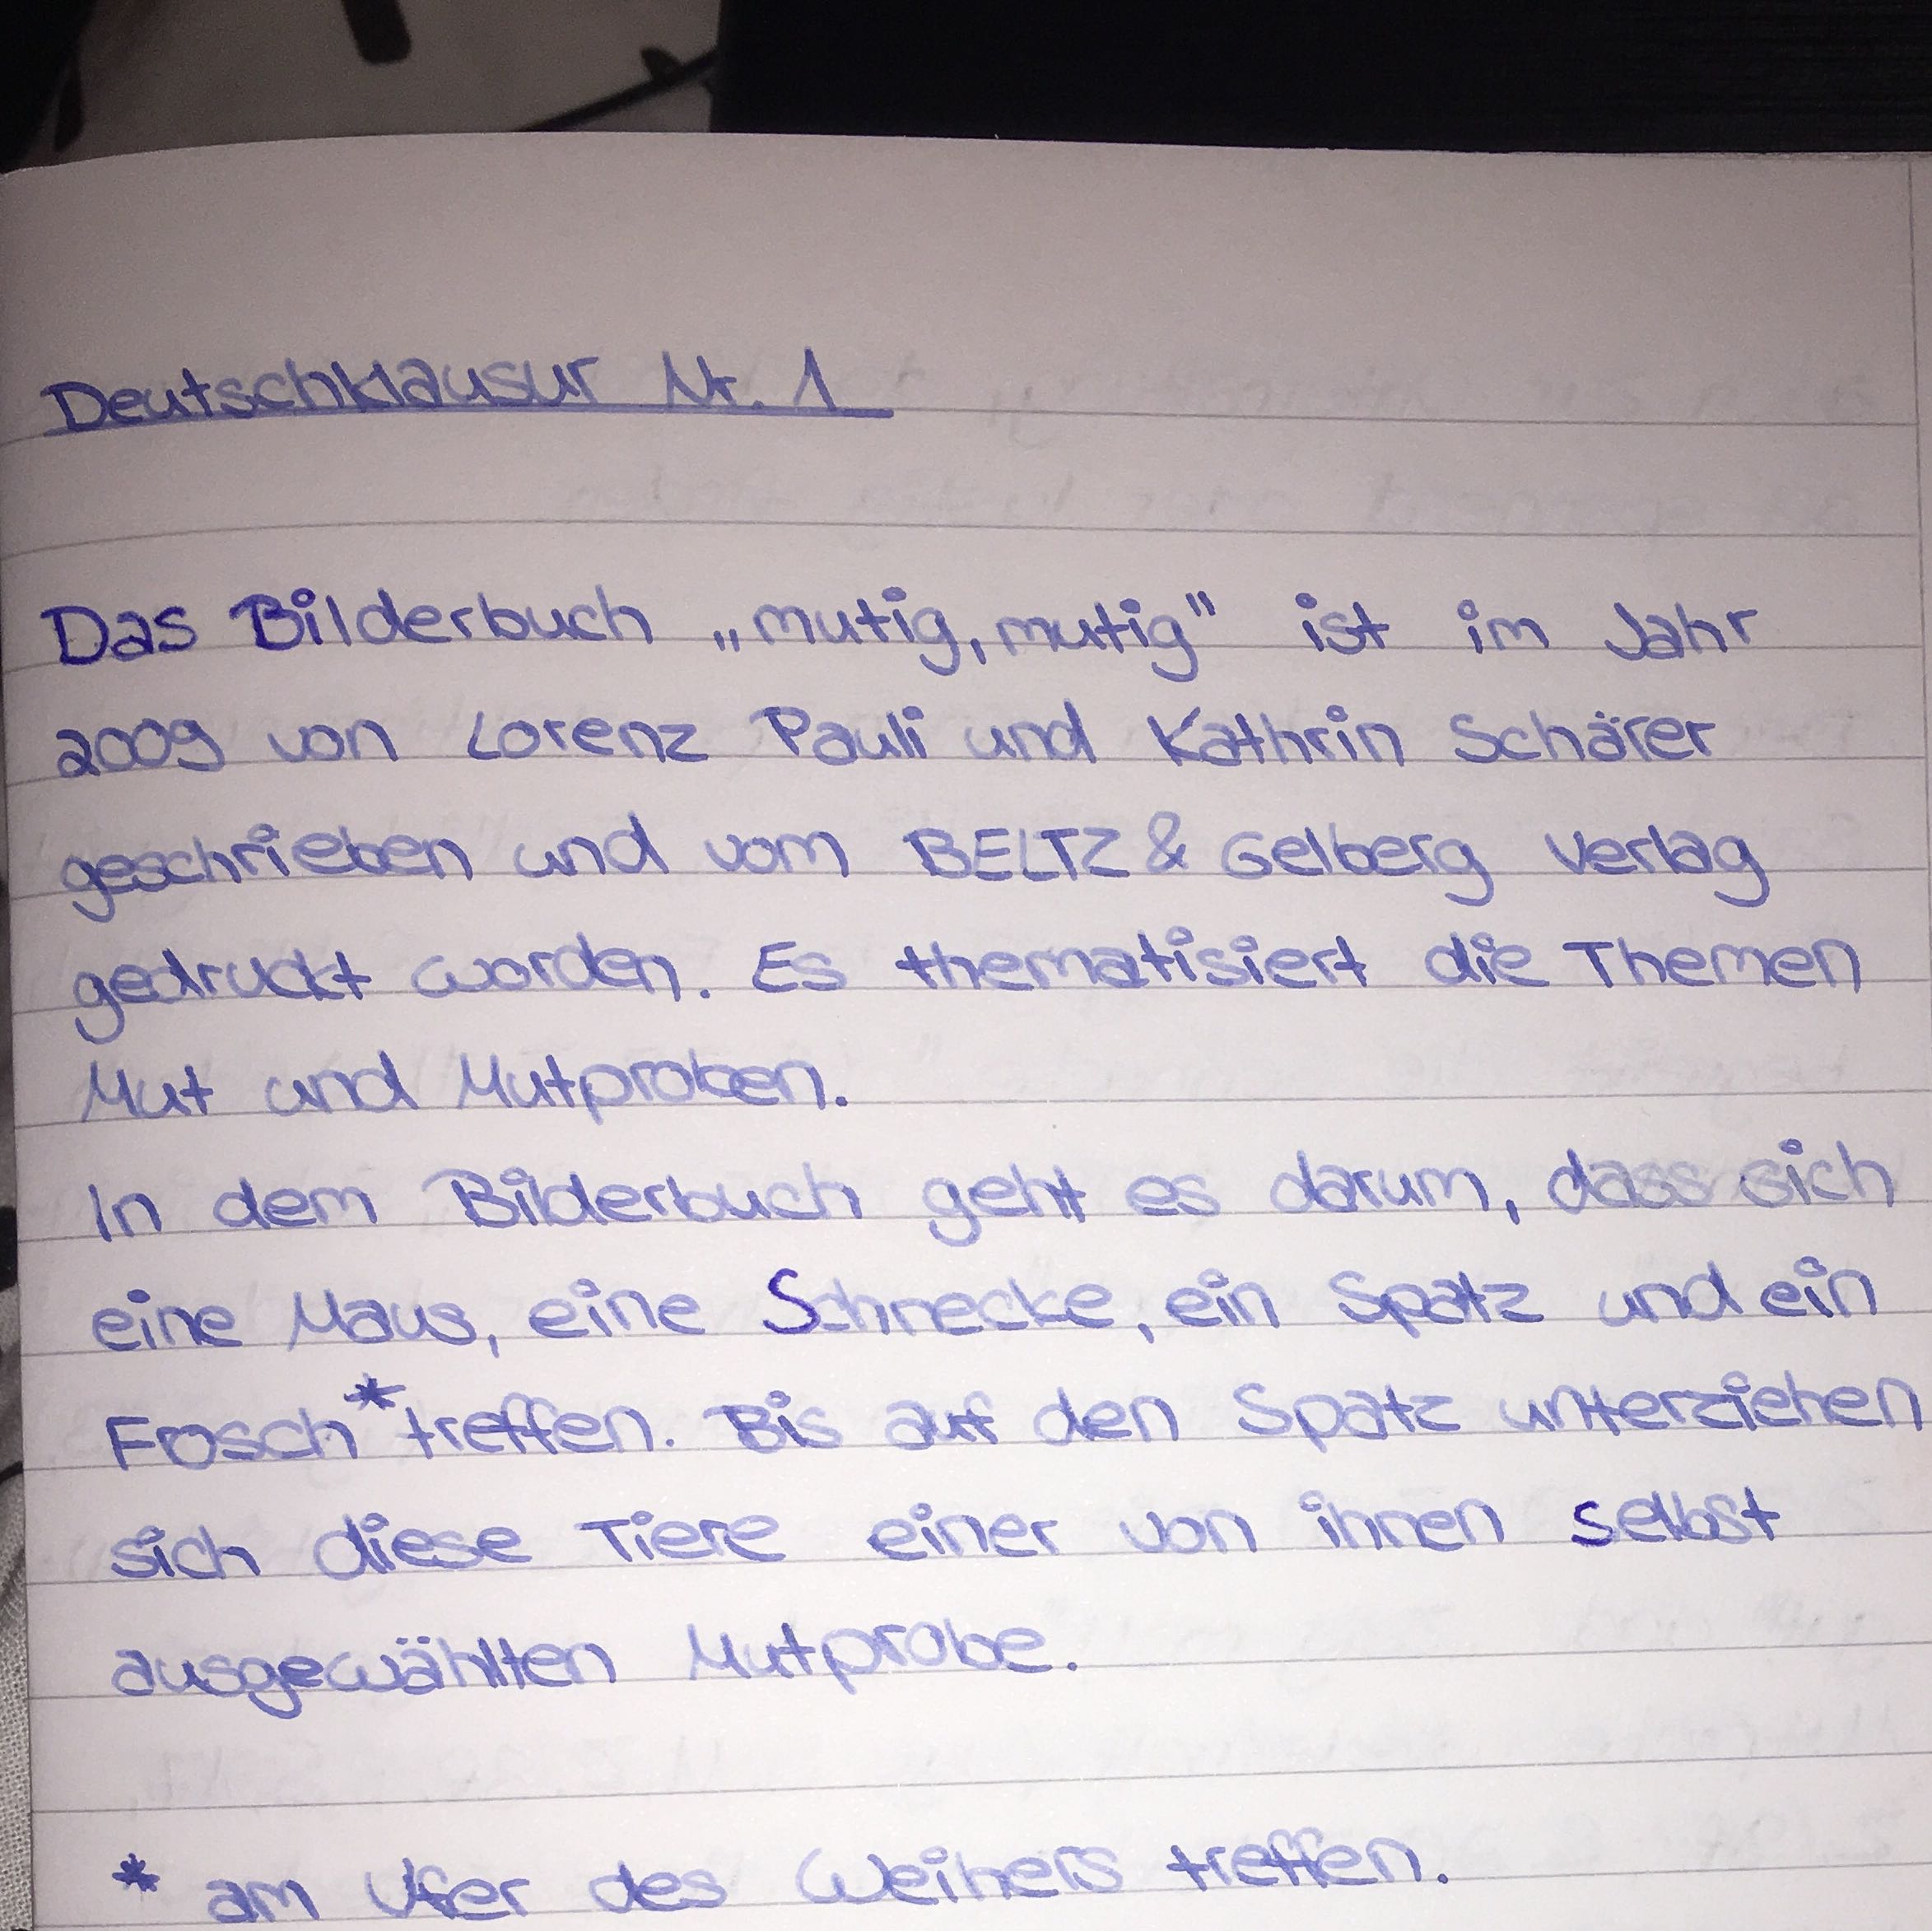 Deutschklausur Nr. 1
Das Bilderbuch „mutig, mutig" ist im Jahr
2009 von Lorenz Pauli und Kathrin Schärer
geschrieben und vom BELTZ & Gelberg Verlag
gedruckt worden. Es thematisiert die Themen
Mut und Mutproben.
In dem Bilderbuch geht es darum, dass sich
eine Maus, eine Schnecke, ein Spatz und ein
Frosch * treffen. Bis auf den Spatz unterziehen
sich diese Tiere einer von ihnen selbst
ausgewählten Mutprobe.
* am Ufer des Weihers treffen.